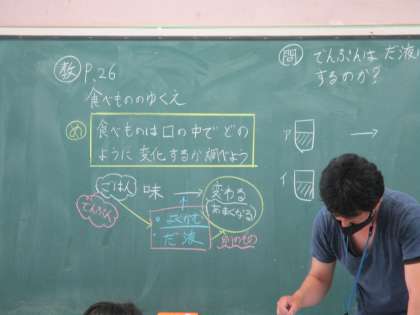 教 P.26
食べもののゆくえ
め 食べものは口の中でどの
ように変化するか調べよう
ごはん 味 → 変わる
(あまくなる)
でんぷん
だ液
別のもの
問 でんぷんは だ液に
するのか?
ア →
イ